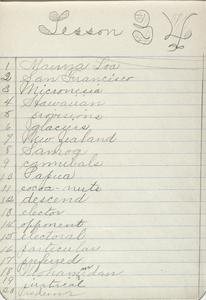 Lesson 34
1 Mauna Loa
2 San Francisco
3 Micronesia
4 Hawaiian
5 provisions
6 glaciers
7 New Zealand
8 Samoa
9 cannibals
10 Papua
11 cocoa-nuts
12 descend
13 elector
14 opponent
15 electoral
16 particular
17 preferred
18 Mohammedan
19
20